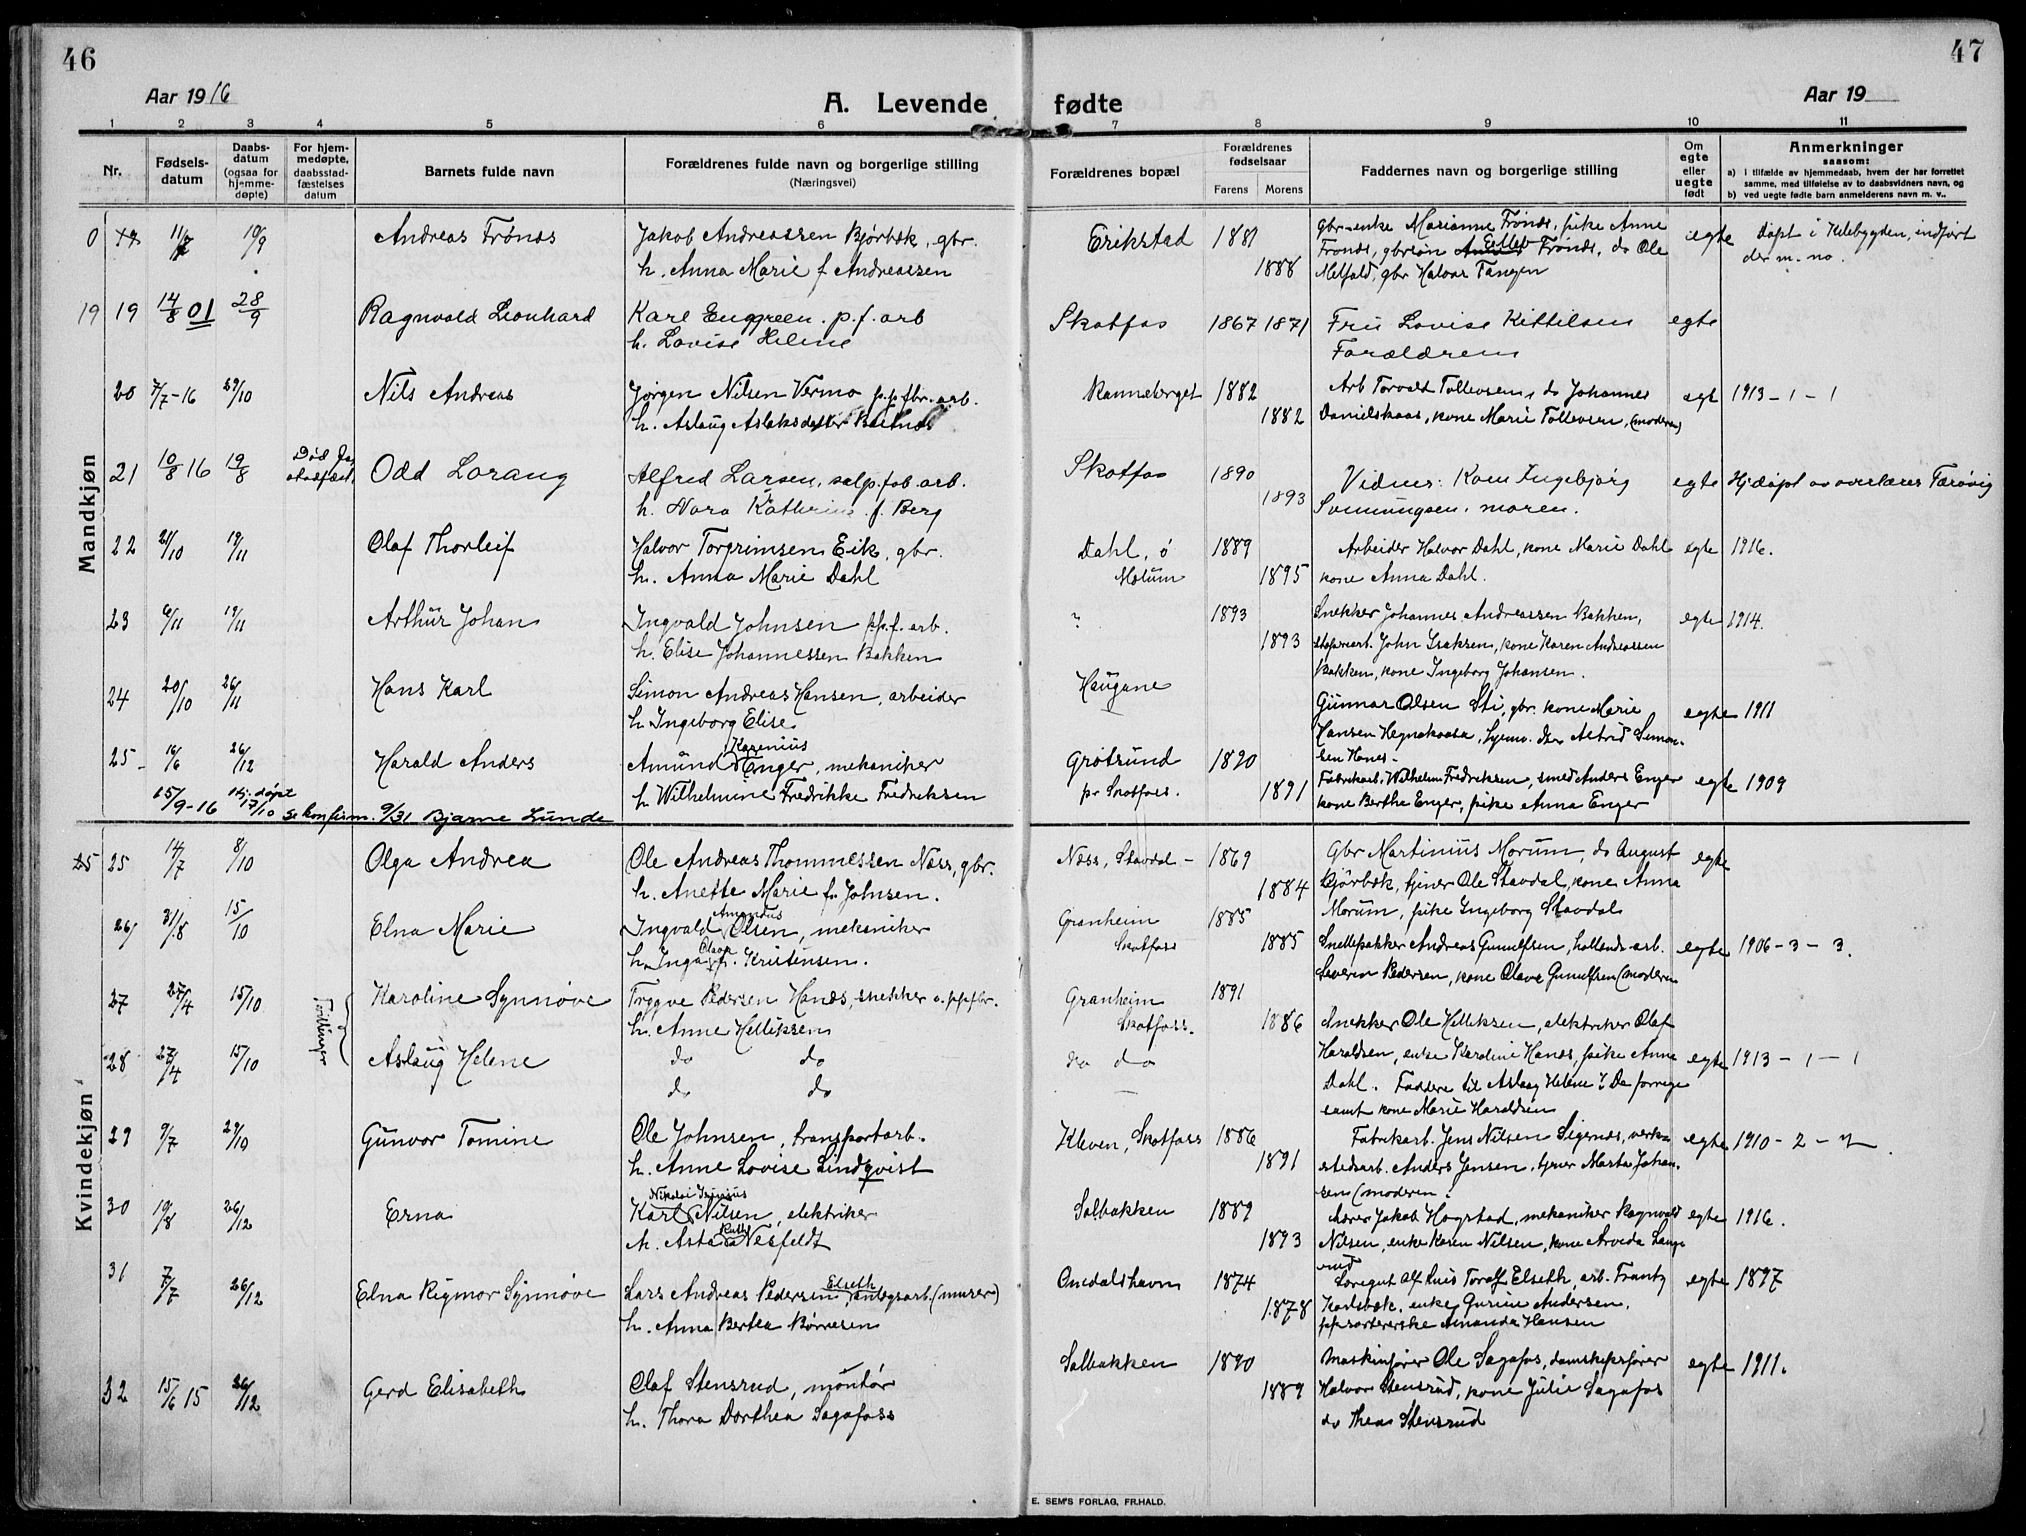 46
47
Aar 1916
A. Levende fødte
Aar 19
1 2 3 4 5 6 7 8 9 10 11
Nr.
Fødsels-
datum
Daabs-
datum
(ogsaa for
hjemme-
døpte)
For hjem-
medøpte,
daabsstad-
fæstelses
datum
Barnets fulde navn
Forældrenes fulde navn og borgerlige stilling
(Næringsvei)
Forældrenes bopæl
Forældrenes
fødselsaar
Farens Morens
Faddernes navn og borgerlige stilling
Om
egte
eller
uegte
født
Anmerkninger
saasom:
a) i tilfælde av hjemmedaab, hvem der har forrettet
samme, med tilføielse av to daabsvidners navn, og
b) ved uegte fødte barn anmelderens navn m. v..
Mandkjøn
0 11/7 10/9 Andreas Frønes Jakob Andreassen Bjørbæk, gbr.
h. Anna Marie f. Andreassen
Erikstad 1881 1888
gbr-enke Marianne Frønes, pike Anne
Frønes, gbrsøn Frønes, do Ole
Melfald, gbr Halvor Tangen
egte Døpt i Kilebygden, indført
der m. no.
19 19 14/8 01 28/9 Ragnvald Leonhard Karl Enggreen. p.f. arb
h. Lovise Helene
Skotfos 1867 1871 Fru Lovise Kittilsen
Forældrene
egte
20 7/7-16 29/10 Nils Andreas Jørgen Nilsen Vermo p.p.fbr. arb.
h. Aslaug Aslaksdatter
Ranneberget 1882 1882
Arb Torvald Tollevsen, do Johannes
Danielskaas, kone Marie Tollevsen, (moderen)
egt 1913 - 1 - 1
21 10/8 16 19/8 Død før
stadfæst. Odd Lorang Alfred Larsen, salp. fab. arb.
h. Nora Kathrine f. Berg
Skotfos 1890 1893
Vidner: Kone Ingebjørg
Sønnungsen. moren.
egte Hj.døpt av overlærer Færøvig
22 21/10 19/11 Olaf Thorleif Halvor Torgrimsen Eik, gbr.
h. Anna Marie Dahl
Dahl, ø
Melum 1889 1895
Arbeider Halvor Dahl, kone Marie Dahl
kone Anna Dahl.
egte 1916.
23 6/11 19/11 Arthur Johan Ingvald Johnsen pp.f. arb.
h. Elise Johannessen Bakken
1893 1893
Snekker Johannes Andreassen Bakken,
John Isaksen, kone Karen Andreassen
Bakken, kone Ingeborg Johansen.
egte 1914.
24 20/10 26/11 Hans Karl Simon Andreas Hansen, arbeider
h. Ingeborg Elise
Haugane
Gunnar Olsen Sti, gbr. kone Marie
Hansen Hegnakaasa, Astrid Simon-
sen Hanes.
egte 1911
25 16/6 26/12 Harald Anders Amund Karenius Enger, mekaniker
h. Wilhelmine Fredrikke Fredriksen
Grøtsund
pr Skotfoss. 1890 1891
Fabrikarb. Wilhelm Fredriksen, smed Anders Enger
kone Berthe Enger, pike Anna Enger
egte 1909
15/9-16 Hj.døpt 17/10 Se konfirm. 9/31 Bjarne Lunde
Kvindekjøn
25 25 14/7 8/10 Olga Andrea Ole Andreas Thommessen Næss, gbr.
h. Anette Marie f. Johnsen.
Næss, Stavdal - 1869 1884
Gbr Martinius Morum, do August
Bjørbæk, tjener Ole Stavdal, kone Anna
Morum, pike Ingeborg Stavdal
egte
26 31/8 15/10 Elna Marie Ingvald Amandus Olsen, mekaniker
h. Inga Olava f. Kristensen.
Granheim
Skotfoss 1885 1885
Snellepakker Andreas Gunulfsen, hollendr-arb.
Severin Pedersen, kone Olave Gunulfsen (moderen
egte 1906 - 3 - 3.
27 27/4 15/10 Tvillinger Karoline Synnøve Trygve Pedersen Hanes, snekker v. ppfbr.
h. Anne Helliksen
Granheim
Skotfoss. 1891 1886
Snekker Ole Helliksen, elektriker Olaf
Haraldsen, enke Karoline Hanes, pike Anne
Dahl. Faddere til Aslaug Helene: De forrige
samt kone Marie Haraldsen
28 27/4 15/10 Aslaug Helene do do
do do
do do
egte 1913 - 1 - 1
29 9/7 29/10 Gunvor Tomine Ole Johnsen, transportarb.
h. Anne Lovise Lindqvist
Kleven, Skotfoss 1886 1891
Fabrikarb. Jens Nilsen Sigernæs, verk-
stedsarb. Anders Jensen, tjener Marta Johan-
sen (moderen.
egte 1910 - 2 -
30 19/8 26/12 Erna Karl Nikolai Nilsen, elektriker
h. Asta Nesfeldt
Solbakken 1889 1893
Jakob Hogstad, mekaniker Ragnvald
Nilsen, enke Karen Nilsen, kone Arveda Lange-
rud
egte 1916.
31 7/7 26/12 Elna Rigmor Synnøve Lars Andreas Pedersen Elseth, anlegsarb. (murer)
h. Anna Bertea Børresen
Omdalshavn 1874 1878
Toralf Elseth, arb. Frantz
Karlsbæk, enke Gurine Andersen,
ppsortererske Amanda Hansen
egte 1897
32 15/6 15 26/12 Gerd Elisabeth Olaf Stensrud, montør
h. Thora Dorthea Sagafoss
Solbakken 1890 1889
Maskinfører Ole Sagafos, damskipsfører
Halvor Stensrud, kone Julie Sagafos
do Thea Stensrud
egte 1911.
E. SEM'S FORLAG, FR.HALD.